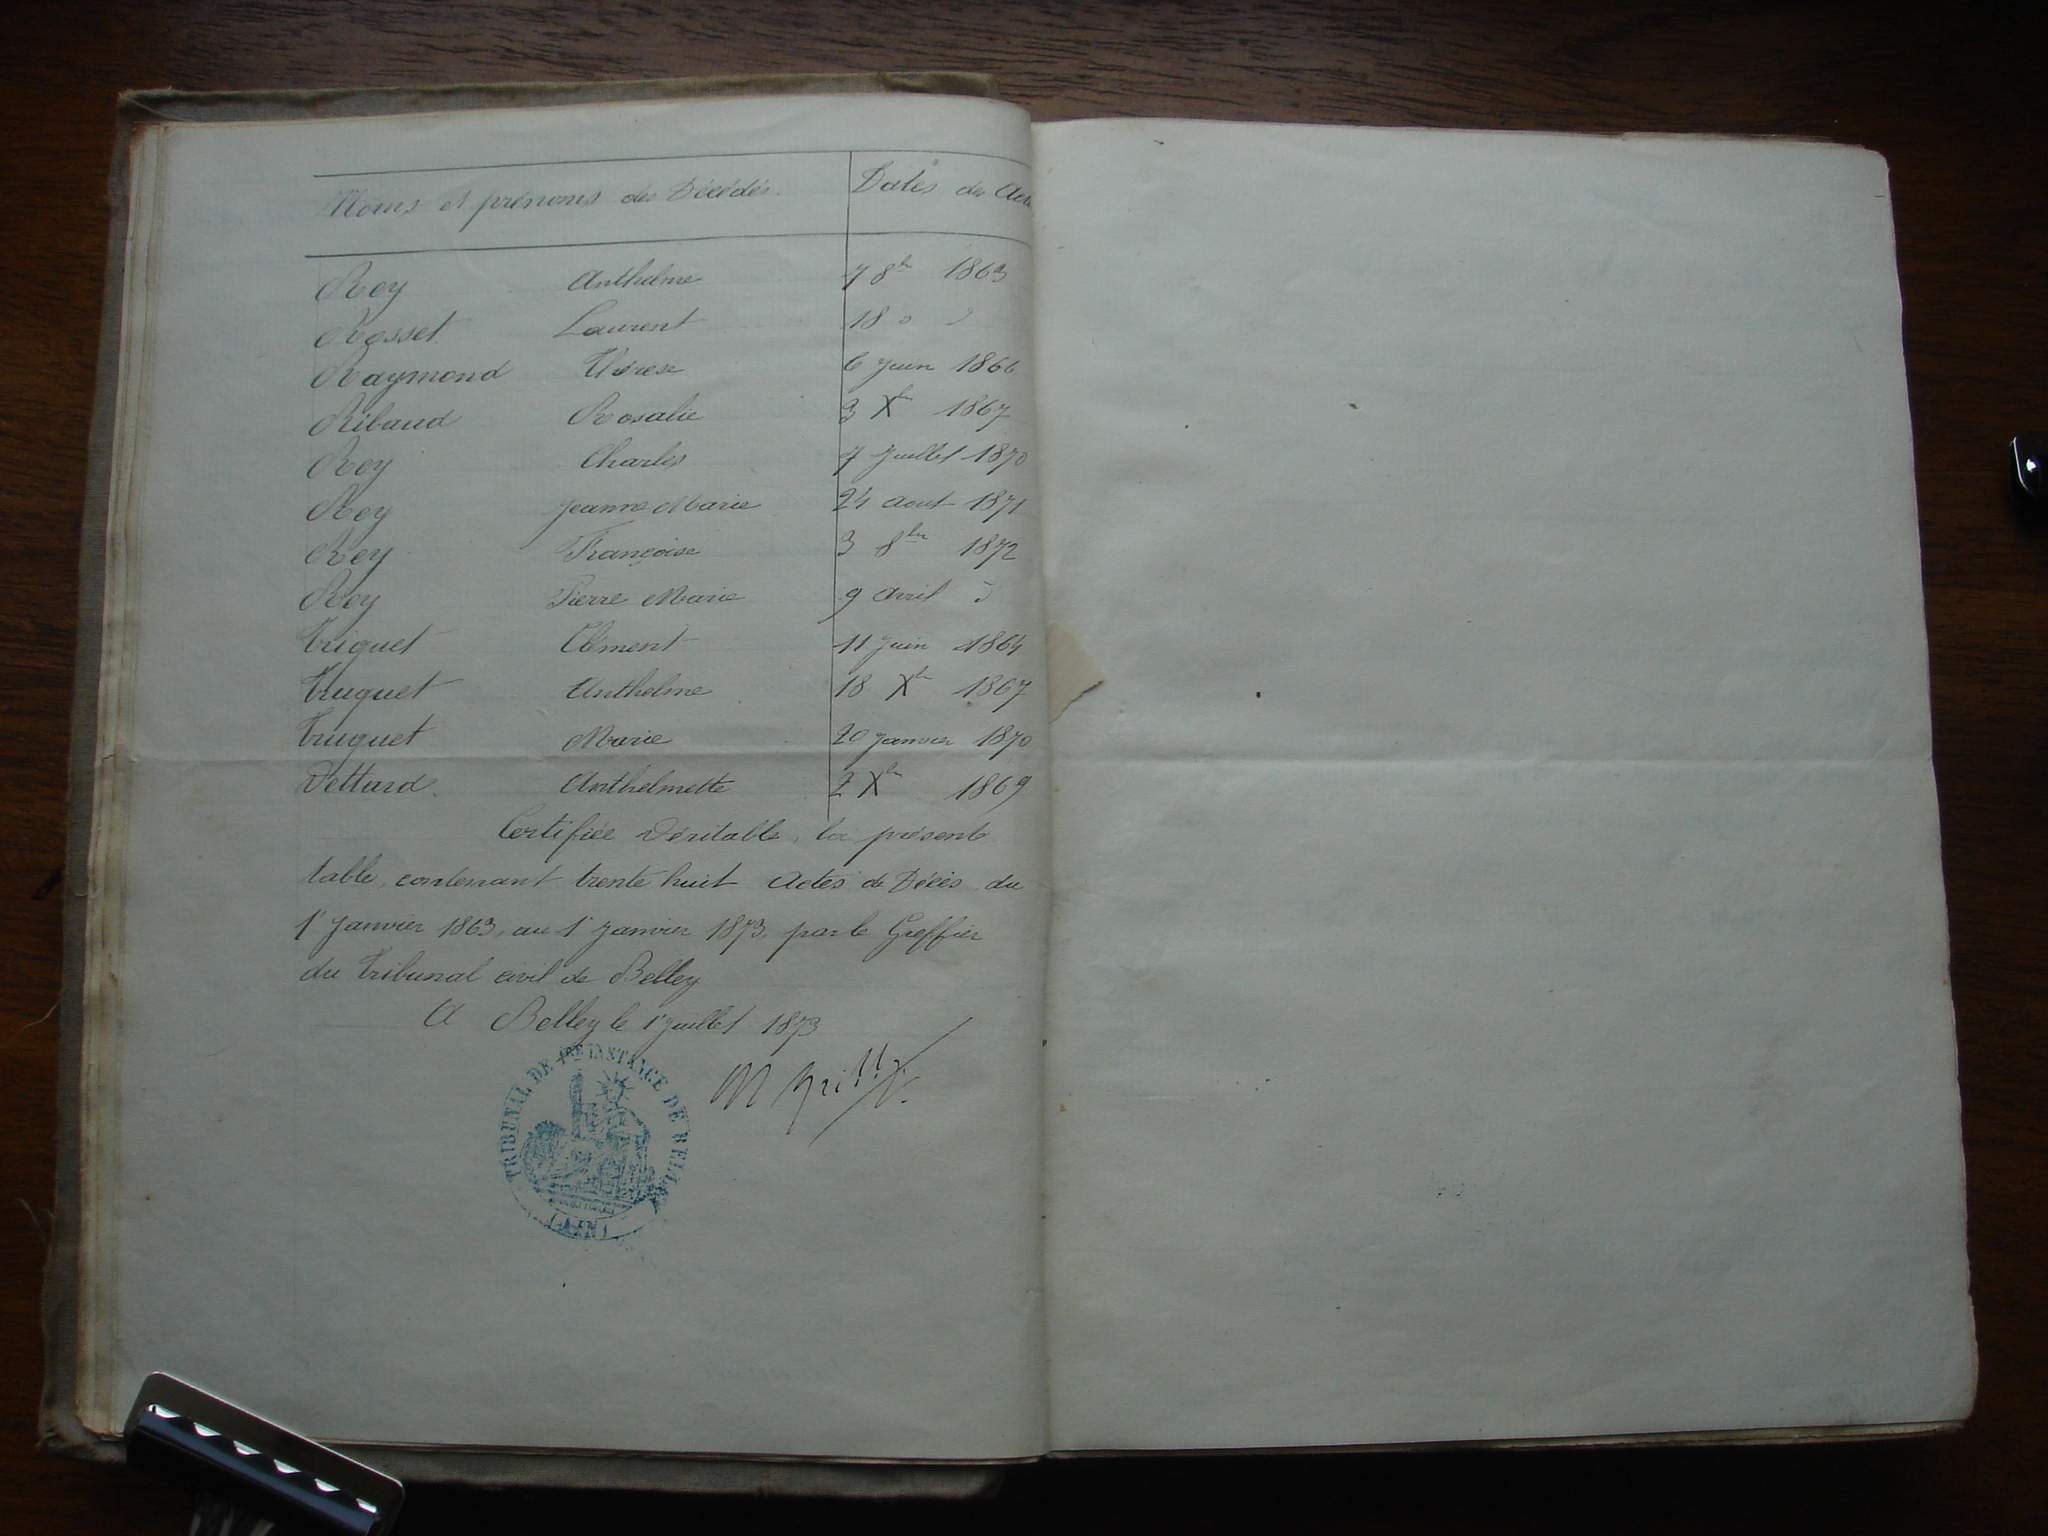 Noms et prénoms des Décédés. Dates des Act
Rey Anthelme 7 8bre 1863
Rosset Laurent 18 d d
Raymond Thérese 6 Juin 1866
Ribaud Rosalie 3 Xbre 1867
Rey Charles 7 Juillet 1870
Rey Jeanne Marie 24 Aout 1871
Rey Françoise 3 8bre 1872
Rey Pierre Marie 9 Avril d
Triquet Clément 11 Juin 1864
Truquet Anthelme 18 Xbre 1867
Truquet Marie 20 Janvier 1870
Vettard. Anthelmette 2 Xbre 1869
Certifiée Véritable, la présente
table, contenant trente huit Actes de Décès du
1r Janvier 1863, au 1r Janvier 1873, par le Greffier
du Tribunal civil de Belley
A Belley le 1r Juillet 1873
TRIBUNAL DE 1RE INSTANCE DE BELL
(AIN)